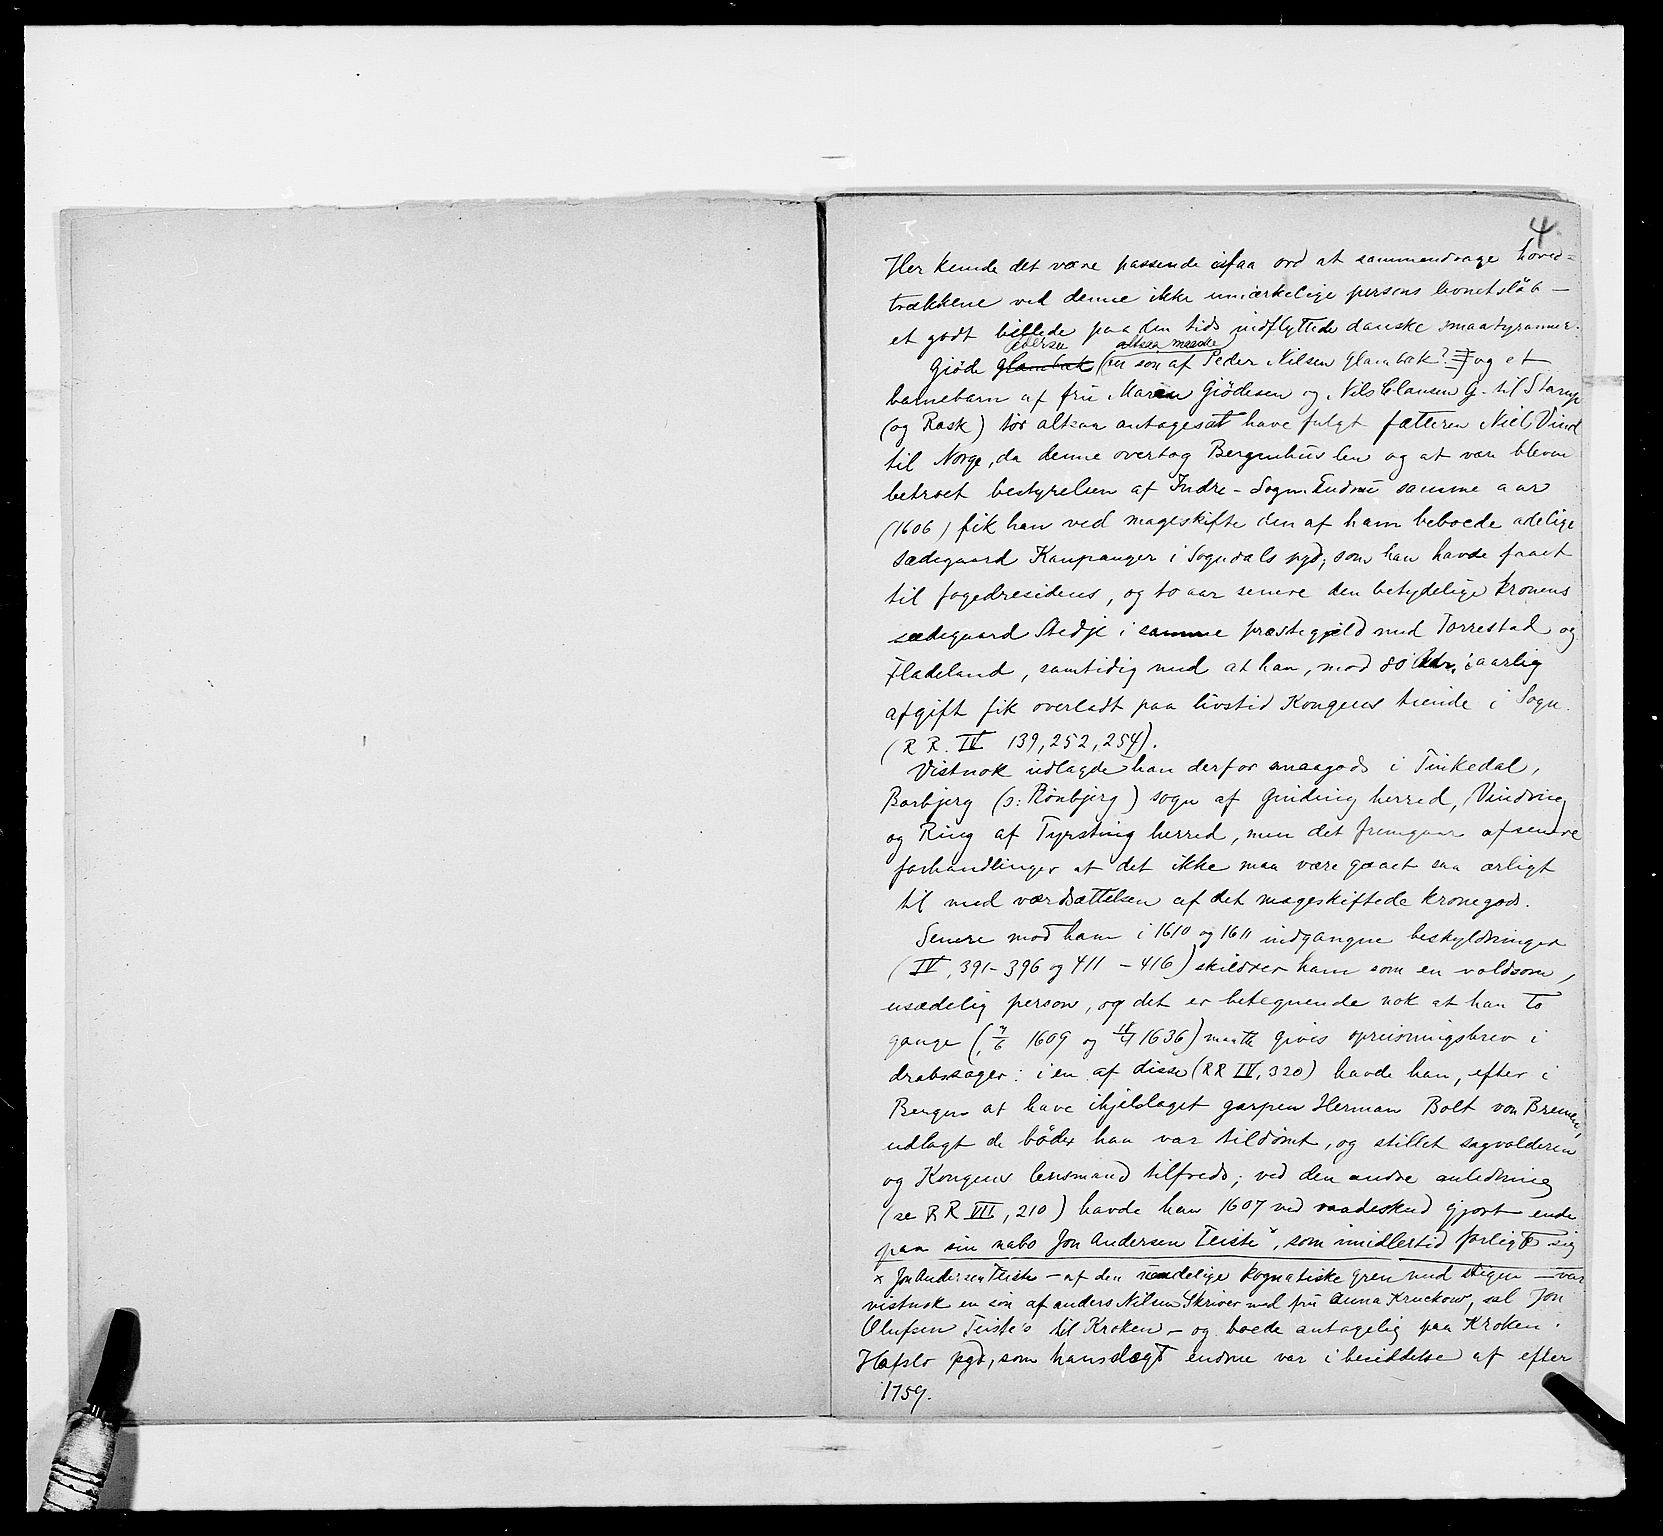 4
Her kunde det være passende i faa ord at sammendrage hoved=
trækkene ved denne ikke umærkelige persons levnetsløb —
et godt billede paa den tids indflyttede danske smaatyranner.
Giøde Glambæk (en søn af Peder Nilsen Glambæk? og et
altsaa maaske
barnebarn af fru Maren Giödesen og Nils Clausen G. til Starup
(og Rask) tør altsaa antages at have fulgt fætteren Niels Vind
til Norge, da denne overtog Bergenhus len og at være bleven
betroet bestyrelsen af Indre-Sogn. Endnu samme aar
(1606) fik han ved mageskifte den af ham beboede adelige
sædegaard Kaupanger i Sogndals pgd, som han havde faaet
til fogedresidens, og to aar senere den betydelige kronens
sædegaard Stedje i samme præstegjeld med Torrestad og
Fladeland, samtidig med at han, mod 80 i aarlig
afgift fik overladt paa livstid Kongens tiende i Sogn.
(R R. IV 139, 252, 254).
Vistnok udlagde han derfor smaagods i Tinkedal,
Borbjerg (ɔ: Rönbjerg) sogn af Ginding herred, Vindving
og Ring af Tyrsting herred, men det fremgaar af senere
forhandlinger at det ikke maa være gaaet saa ærligt
til med værdsættelsen af det mageskiftede kronegods.
Senere mod ham i 1610 og 1611 indgangne beskyldninger
(IV, 391-396 og 411-416) skildrer ham som en voldsom,
usædelig person, og det er betegnende nok at han to
gange ( 1609 og 1636) maatte gives opreisningsbrev i
drabssager: i en af disse (RR IV, 320) havde han, efter i
Bergen at have ihjelslaget garpen Herman Bolt von Bremen,
udlagt de bøder han var tildömt, og stillet sagvolderen
og Kongens lensmand tilfreds; ved den andre anledning
(se R R VII, 210) havde han 1607 ved vaadeskud gjort ende
paa sin nabo Jon Andersen Teiste x, som imidlertid forligte sig
x Jon Andersen Teiste — af den uendelige kognatiske gren med stigen — var
vistnok en søn af Anders Nilsen Skriver med fru Anna Kruckow, sal Jon
Olufsen Teiste's til Kroken — og boede antagelig paa Kroken i
Hafslo pgd, som hans slægt endnu var i besiddelse af efter
1759.